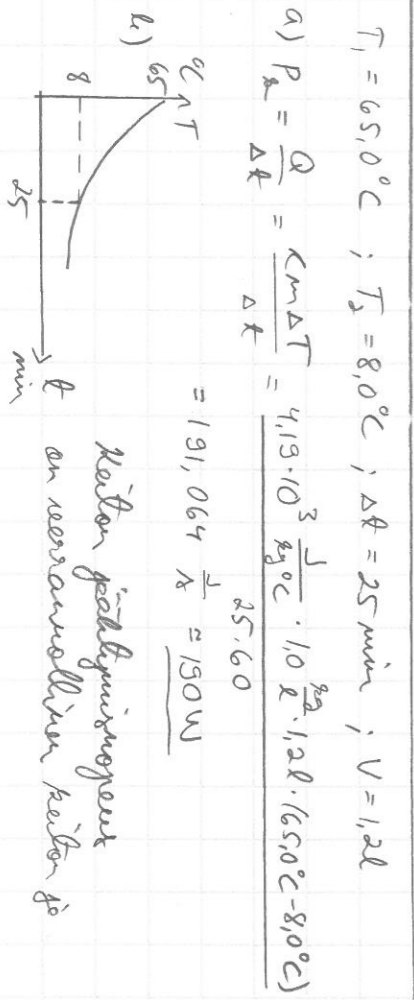 T₁ = 65,0°C ; T₂ = 8,0°C ; Δt = 25 min ; V = 1,2l
a) Pₖ = Q/Δt = cmΔT/Δt = 4,19·10³ J/kg°C · 1,0 kg/l · 1,2l · (65,0°C-8,0°C) / 25·60
= 191,064 J/s = 190W
b) °C T
65
8
25
t
min
Keiton jäähtymisnopeus
on verrannollinen keiton ja